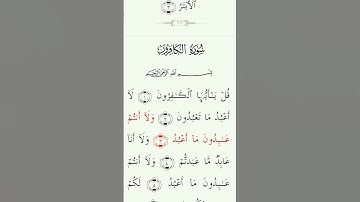 ٱلْأَبْتَرُ ٣
سُورَةُ الكَافِرُونَ
بِسْمِ ٱللَّهِ ٱلرَّحْمَٰنِ ٱلرَّحِيمِ
قُلْ يَٰٓأَيُّهَا ٱلْكَٰفِرُونَ ١ لَآ
أَعْبُدُ مَا تَعْبُدُونَ ٢ وَلَآ أَنتُمْ
عَٰبِدُونَ مَآ أَعْبُدُ ٣ وَلَآ أَنَا۠
عَابِدٌ مَّا عَبَدتُّمْ ٤ وَلَآ أَنتُمْ
عَٰبِدُونَ مَآ أَعْبُدُ ٥ لَكُمْ